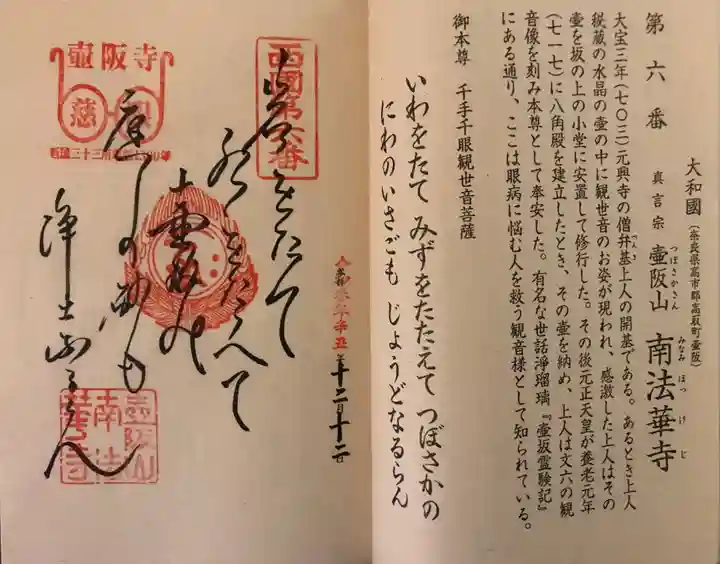 第六番
大和國（奈良県高市郡高取町壷阪）
真言宗 壷阪山 南法華寺
つぼさかさん みなみほっけじ
大宝三年（七〇三）元興寺の僧弁基上人の開基である。あるとき上人
べんき
秘蔵の水晶の壷の中に観世音のお姿が現われ、感激した上人はその
壷を坂の上の小堂に安置して修行した。その後元正天皇が養老元年
（七一七）に八角殿を建立したとき、その壷を納め、上人は丈六の観
音像を刻み本尊として奉安した。有名な世話浄瑠璃『壷坂霊験記』
にある通り、ここは眼病に悩む人を救う観音様として知られている。
御本尊 千手千眼観世音菩薩
いわをたて みずをたたえて つぼさかの
にわのいさごも じょうどなるらん
西國第六番
岩をたて
水をたたへて
壷阪の
庭のいさごも
浄土なるらん
十二月十二日
壷阪寺
慈
壷阪山
南法
華寺